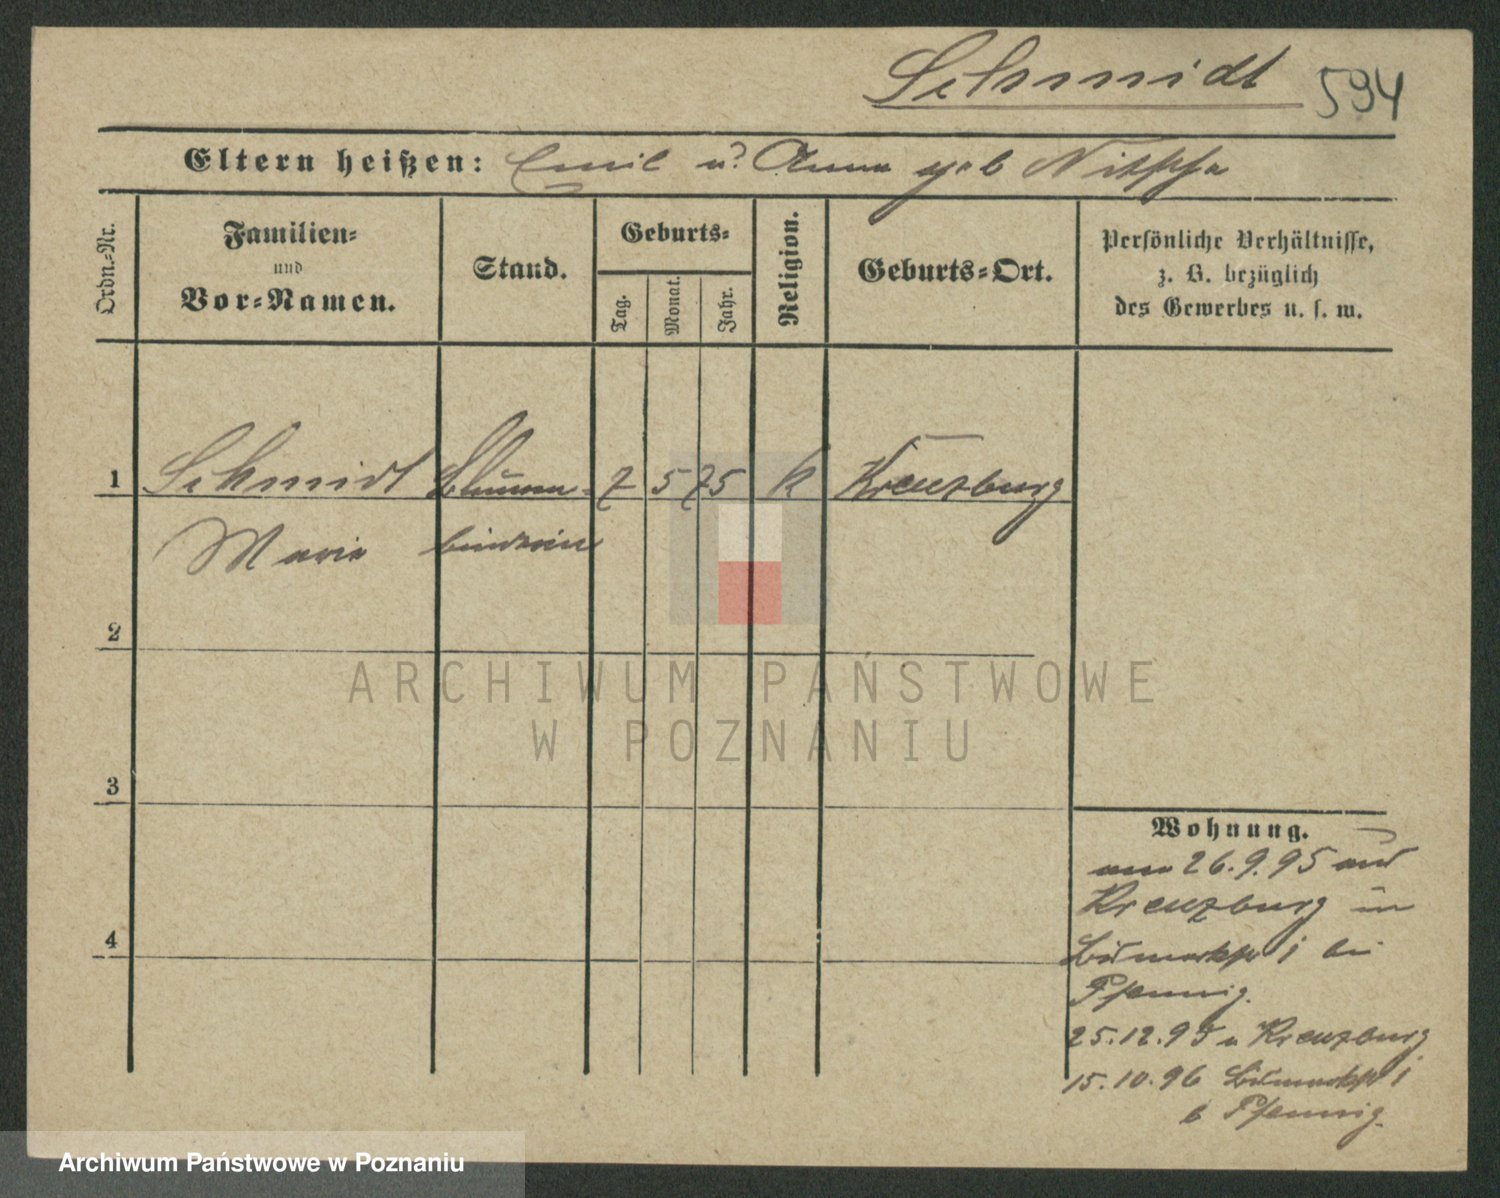 Schmidt 594
Eltern heißen: Emil u. Anna geb Nitschke
Ordn.-Nr.
Familien-
und
Vor-Namen.
Stand.
Geburts-
Tag.
Monat.
Jahr.
Religion.
Geburts-Ort.
Persönliche Verhältnisse,
z. B. bezüglich
des Gewerbes u. s. w.
1 Schmidt Blumen- 7 5 75 k Kreuzburg
Marie binderin
2
3
4
Wohnung.
am 26.9.95 aus
Kreuzburg in
Bismarckstr 1 bei
Pfennig.
25.12.95 n Kreuzburg
15.10.96 Bismarckstr 1
b Pfennig.
ARCHIWUM PAŃSTWOWE
W POZNANIU
Archiwum Państwowe w Poznaniu